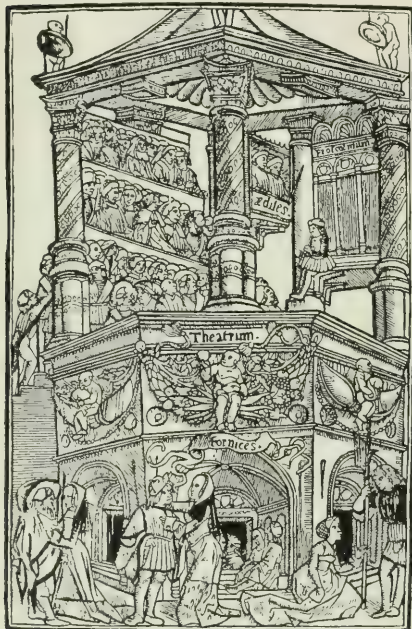 ædiles.
Theatrum.
Fornices.